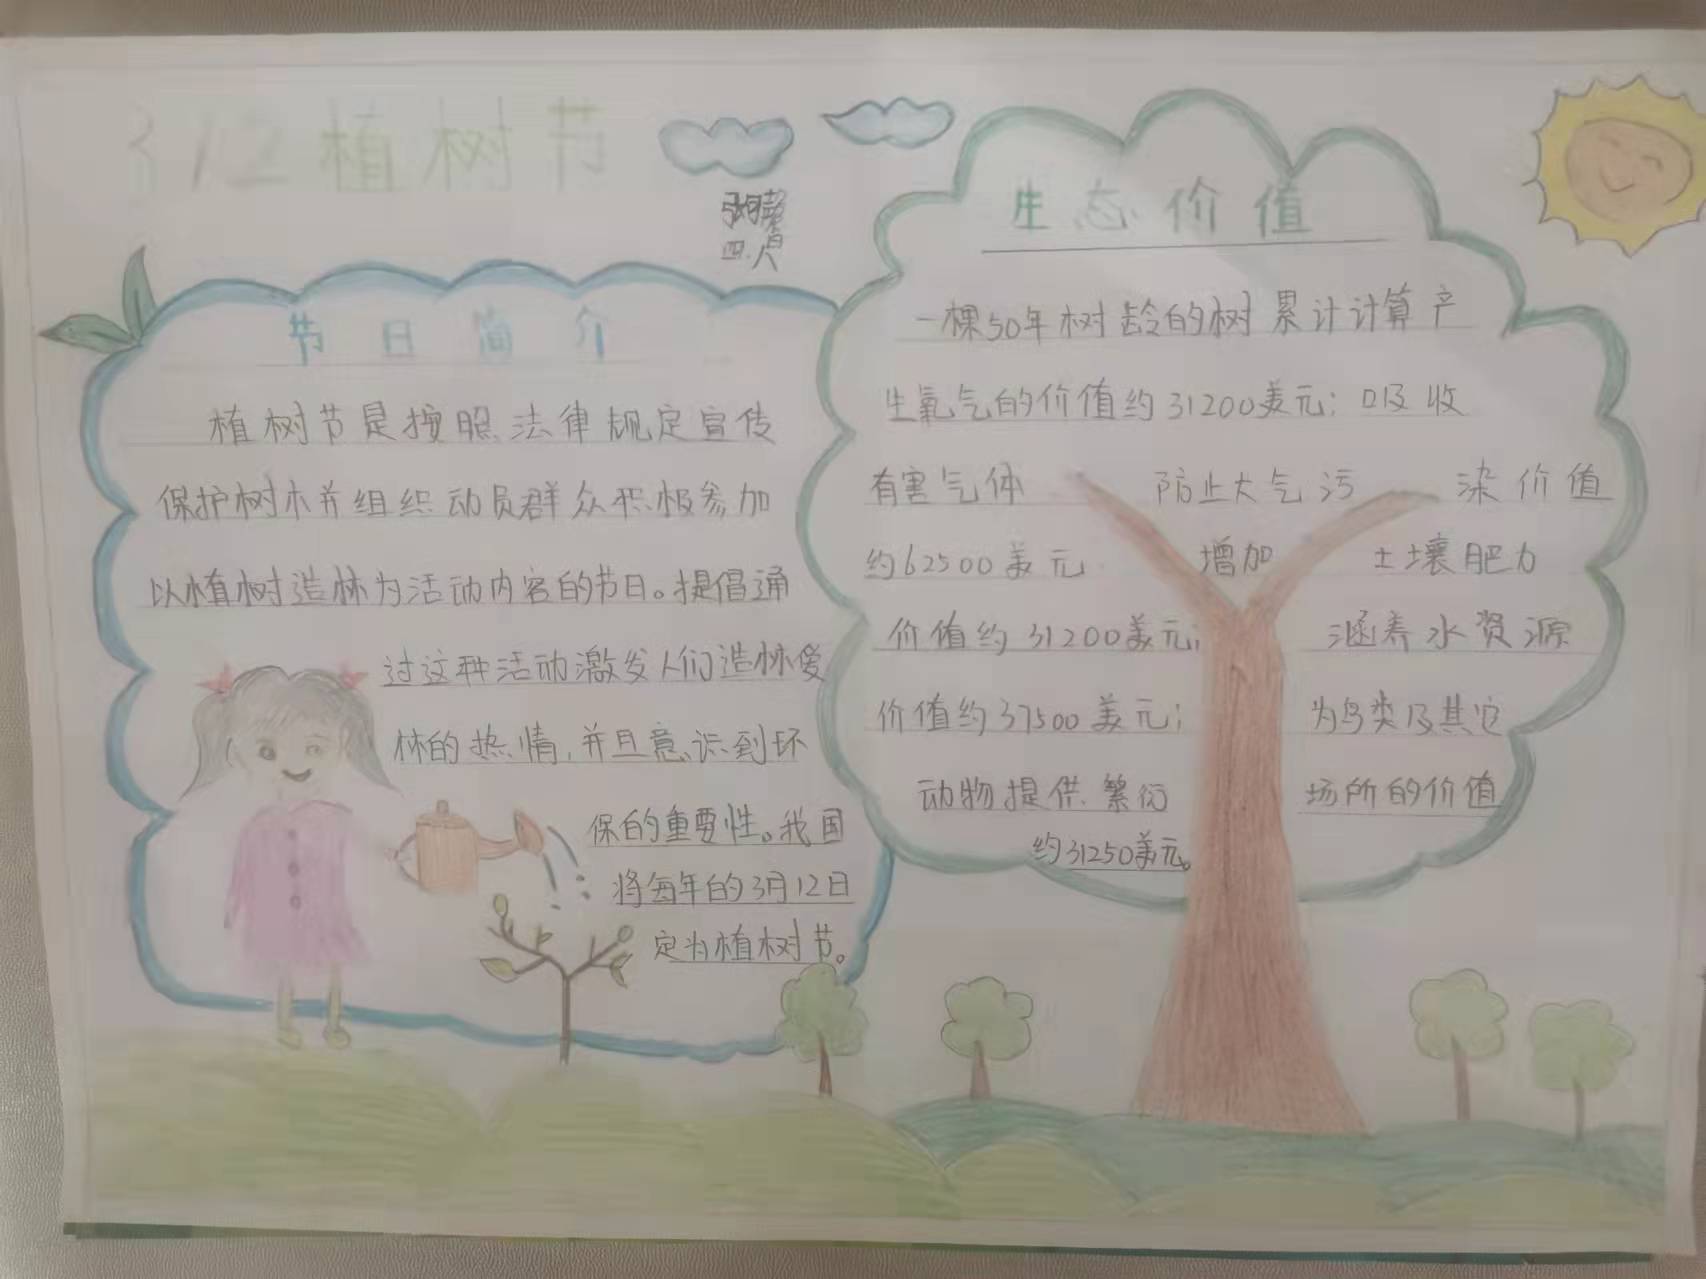 312植树节
四.八
节日简介
植树节是按照法律规定宣传
保护树木并组织动员群众积极参加
以植树造林为活动内容的节日。提倡通
过这种活动激发人们造林爱
林的热情,并且意识到环
保的重要性。我国
将每年的3月12日
定为植树节。
生态价值
一棵50年树龄的树累计计算产
生氧气的价值约31200美元;吸收
有害气体 防止大气污 染价值
约62500美元 增加 土壤肥力
价值约31200美元; 涵养水资源
价值约37500美元; 为鸟类及其它
动物提供繁衍 场所的价值
约31250美元。